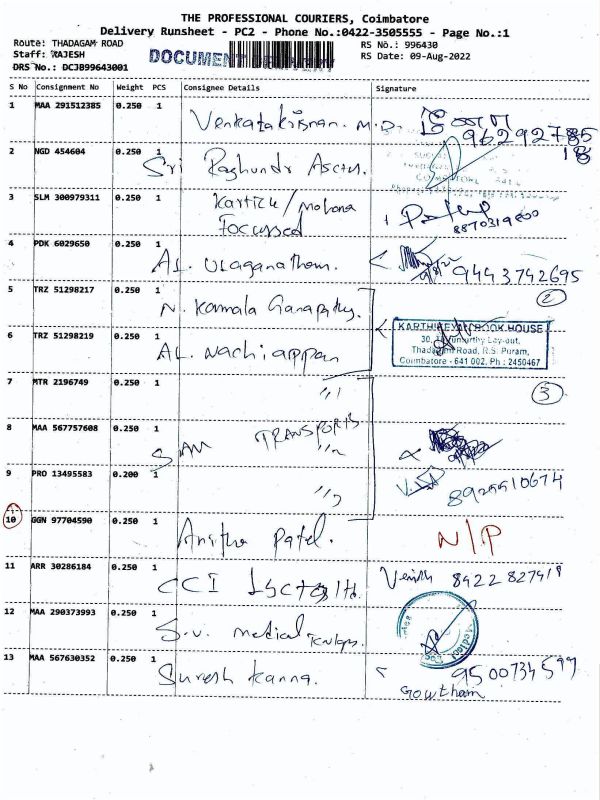 THE PROFESSIONAL COURIERS, Coimbatore
Delivery Runsheet - PC2 - Phone No.:0422-3505555 - Page No.:1
Route: THADAGAM ROAD
Staff: RAJESH
DRS No.: DCJB99643001
DOCUMENT
RS No.: 996430
RS Date: 09-Aug-2022
S No Consignment No Weight PCS Consignee Details Signature
1 MAA 291512385 0.250 1 Venkatakrisnan. M.D.
2 NGD 454604 0.250 1 Sri
3 SLM 300979311 0.250 1 Kartick/Mohana
Focussed
4 PDK 6029650 0.250 1 AL. Ulaganathan. 9443742695
5 TRZ 51298217 0.250 1 N. Kamala Ganapathy. 2
KARTHIKEYAN BOOK HOUSE
30, Layout,
Thadagam Road, R.S. Puram,
Coimbatore - 641 002, Ph : 2450467
6 TRZ 51298219 0.250 1 AL. Nachiappan
7 MTR 2196749 0.250 1 "1 3
8 MAA 567757608 0.250 1 SAM TRANSPORTS "2
9 PRO 13495583 0.200 1 "3
10 GGN 97704590 0.250 1 Anitha Patel. N/P
11 ARR 30286184 0.250 1 CCI
12 MAA 290373993 0.250 1 S.V. Medical
13 MAA 567630352 0.250 1 Suresh Kanna.
Gowtham